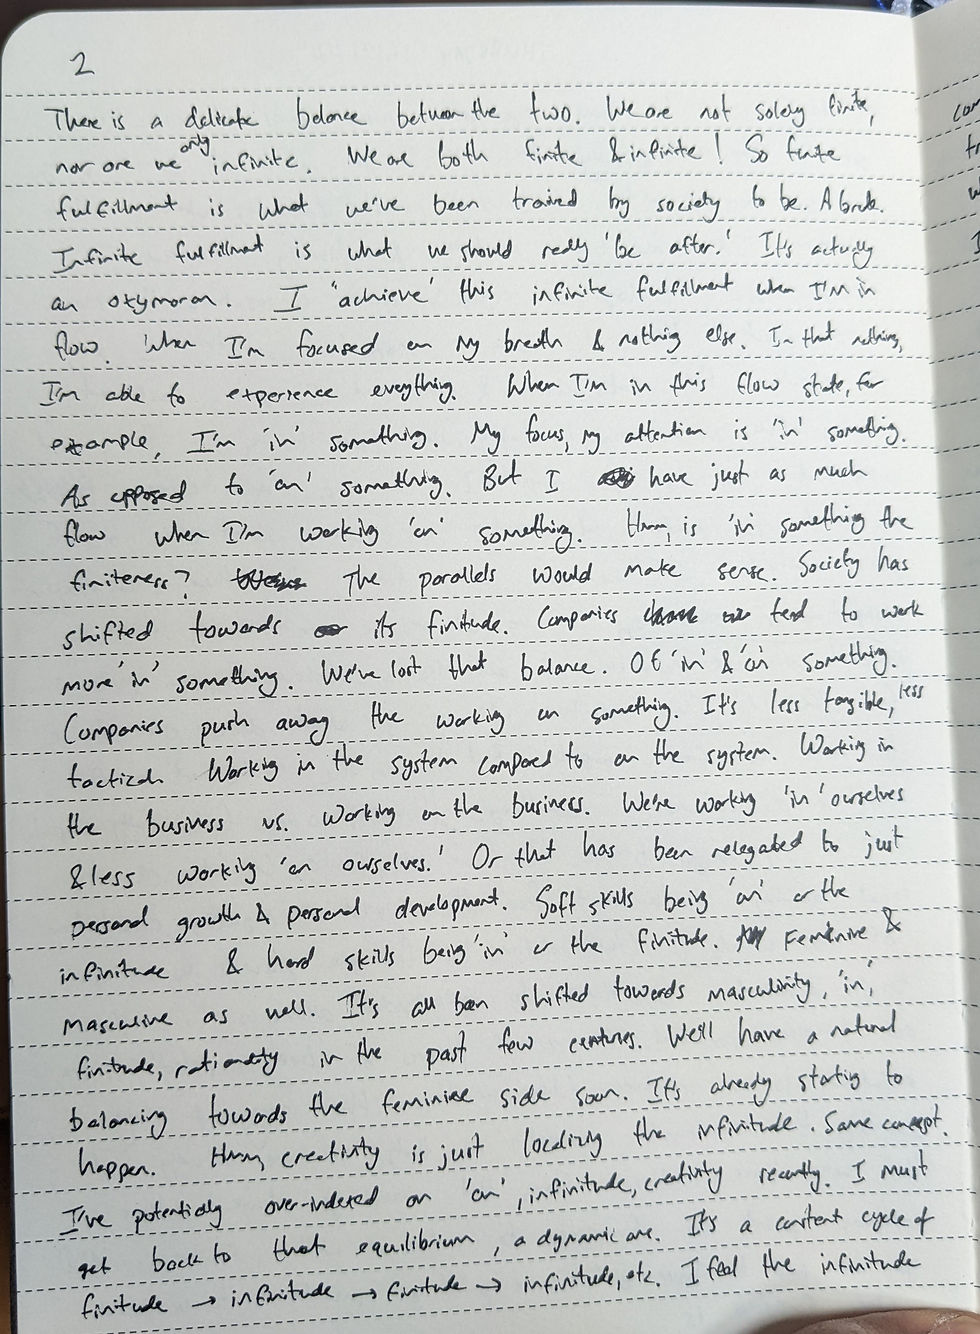 2
There is a delicate balance between the two. We are not solely finite,
nor are we only infinite. We are both finite & infinite! So finite
fulfillment is what we've been trained by society to be. A brute.
Infinite fulfillment is what we should really 'be after.' It's actually
an oxymoron. I 'achieve' this infinite fulfillment when I'm in
flow. When I'm focused on my breath & nothing else. In that nothing,
I'm able to experience everything. When I'm in this flow state, for
example, I'm 'in' something. My focus, my attention is 'in' something.
As opposed to 'on' something. But I have just as much
flow when I'm working 'on' something. Hmm, is 'in' something the
finiteness? The parallels would make sense. Society has
shifted towards its finitude. Companies tend to work
more 'in' something. We've lost that balance. Of 'in' & 'on' something.
Companies push away the working on something. It's less tangible, less
tactical. Working in the system compared to on the system. Working in
the business vs. working on the business. We're working 'in' ourselves
& less working 'on ourselves.' Or that has been relegated to just
personal growth & personal development. Soft skills being 'on' or the
infinitude & hard skills being 'in' or the finitude. Feminine &
masculine as well. It's all been shifted towards masculinity, 'in,'
finitude, rationality in the past few centuries. We'll have a natural
balancing towards the feminine side soon. It's already starting to
happen. Hmm, creativity is just localizing the infinitude. Same concept.
I've potentially over-indexed on 'on', infinitude, creativity recently. I must
get back to that equilibrium, a dynamic one. It's a constant cycle of
finitude → infinitude → finitude → infinitude, etc. I feel the infinitude